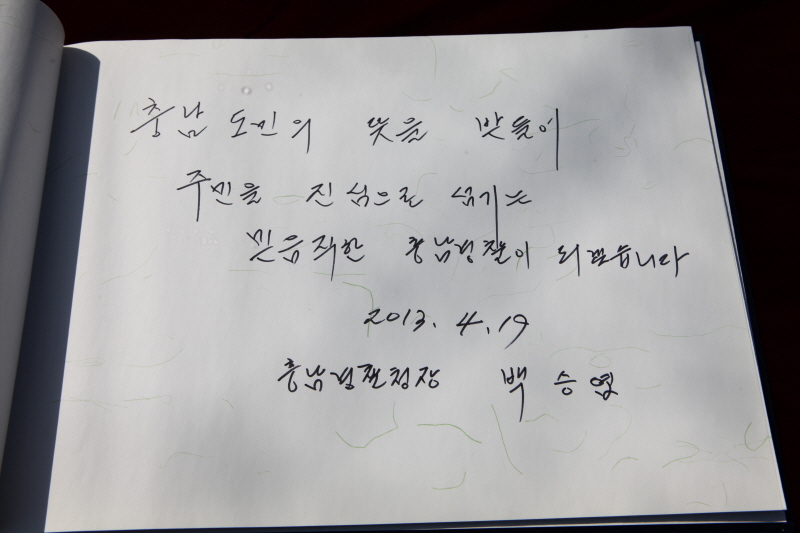 충남 도민의 뜻을 받들어
주민을 진심으로 섬기는
믿음직한 충남경찰이 되겠습니다
2013. 4. 19
충남경찰청장 백승엽